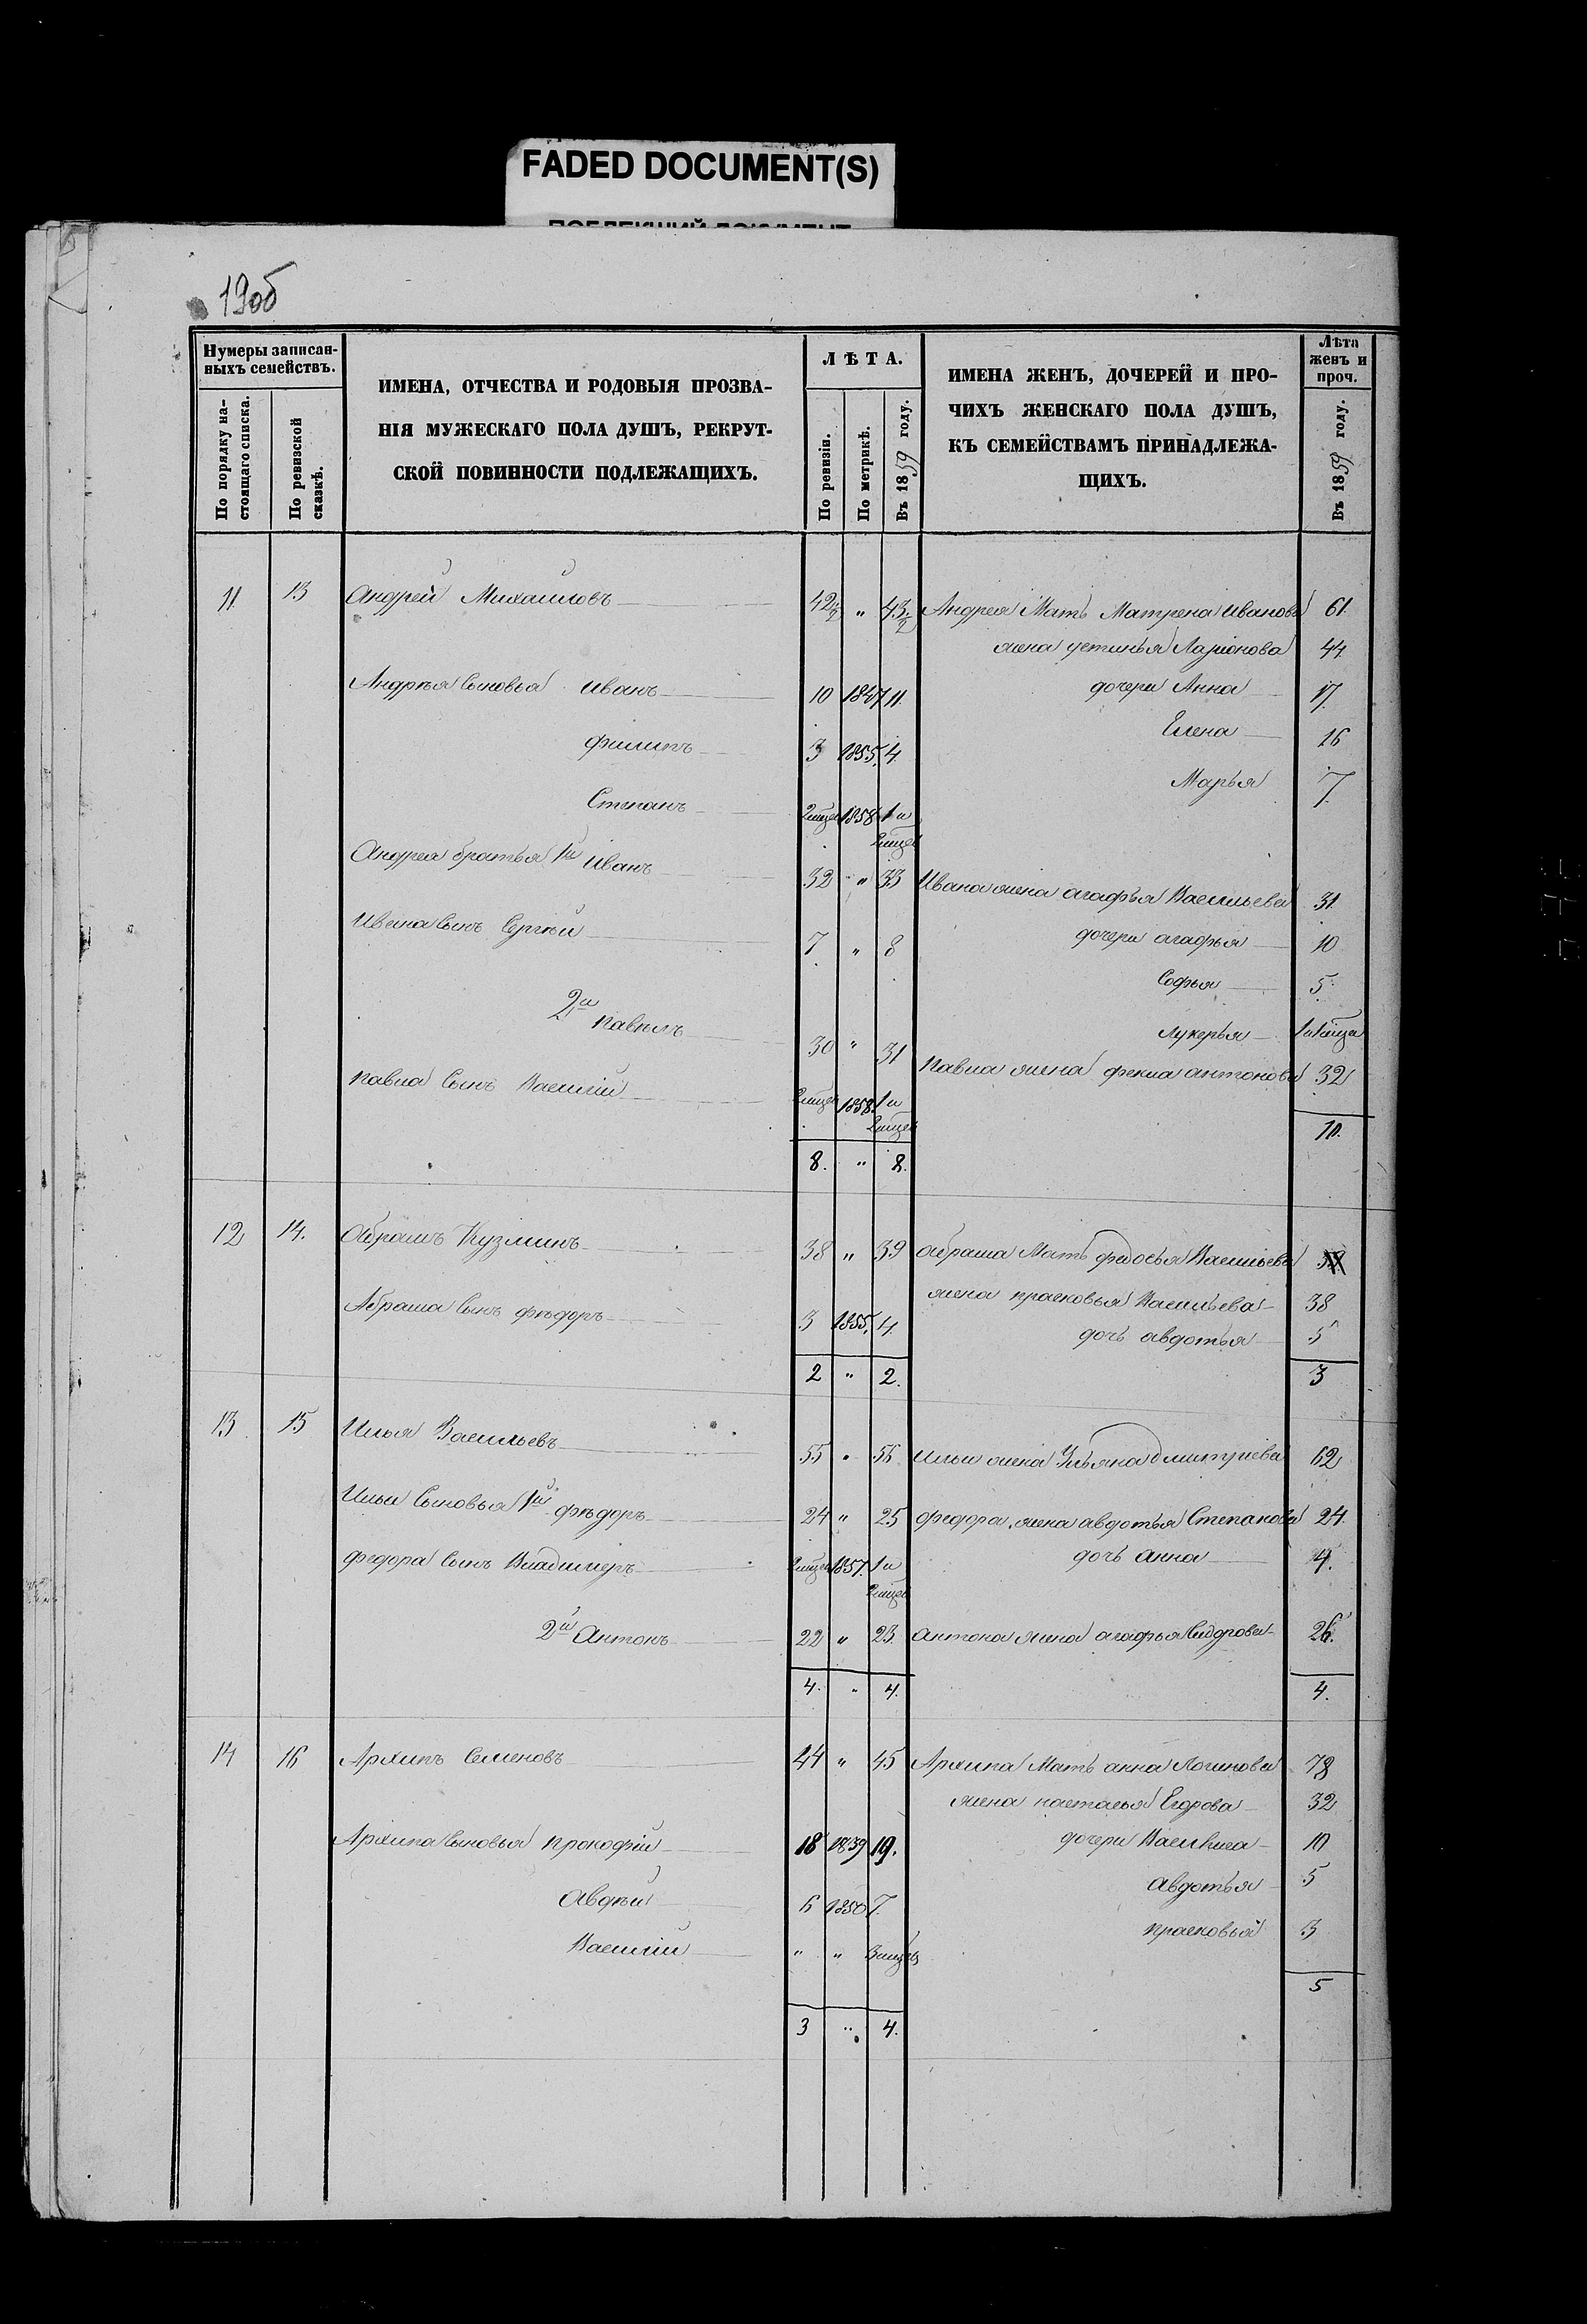 FADED DOCUMENT(S)
19об
Нумеры записан-
ныхъ семействъ.
По порядку на-
стоящаго списка.
По ревизской
сказкѣ.
ИМЕНА, ОТЧЕСТВА И РОДОВЫЯ ПРОЗВА-
НІЯ МУЖЕСКАГО ПОЛА ДУШЪ, РЕКРУТ-
СКОЙ ПОВИННОСТИ ПОДЛЕЖАЩИХЪ.
ЛѢТА.
По ревизіи.
По метрикѣ.
Въ 1859 году.
ИМЕНА ЖЕНЪ, ДОЧЕРЕЙ И ПРО-
ЧИХЪ ЖЕНСКАГО ПОЛА ДУШЪ,
КЪ СЕМЕЙСТВАМЪ ПРИНАДЛЕЖА-
ЩИХЪ.
Лѣта
женъ и
проч.
Въ 1859 году.
11. 13 Андрей Михаиловъ 42½ " 43½ Андрея Мать Матрена Иванова 61.
жена устинья Ларионова 44
Андрѣя Сыновья Иванъ 10 1847 11. дочери Анна 17.
Елена 16
филипъ 3 1855. 4.
Марья 7.
Степанъ 2мцев 1858 1 и
2мцев
Андрея братья 1й Иванъ 32 " 33 Ивана жена агафья Васильева 31.
Ивана сынъ Сергѣй 7. " 8 дочери агафья 10
Софья 5.
2й павелъ 30 " 31 лукерья 1 и 1 мца
павла жена фекла антонова 32
павла Сынъ Василий 2мцев 1858. 1 и
2мцев
11.
8. " 8.
12 14. Абрамъ Кузминъ 38 " 39 абрама Мать федосья Васильева
жена прасковья Васильева 38
Абрама Сынъ фѣдоръ 3 1855. 4. дочь авдотья 5
2 " 2. 3
13. 15 Илья Васильевъ 55 " 56 ильи жена Ульяна дмитриева 62
Ильи Сыновья 1й фѣдоръ 24 " 25 федора жена авдотья Степанова 24.
федора Сынъ Владимеръ 2мцев 1857. 1 и дочь анна 4.
2мцев
2й Антонъ 22 " 23. антона жена агафья Сидрова 26.
4. " 4. 4.
14 16 Архипъ Семеновъ 44 " 45 Архипа Мать анна Логинова 78
жена наталья Егорова 32
Архипа Сыновья прокофий 18 1839 19. дочери Василиса 10
авдотья 5
Авдѣй 6 1850 7.
прасковья 3
Василий " " 3мцев
5
3 " 4.